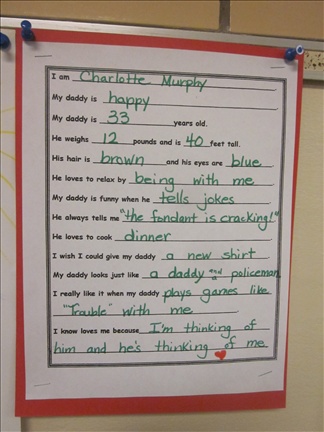 I am Charlotte Murphy
My daddy is happy
My daddy is 33 years old.
He weighs 12 pounds and is 40 feet tall.
His hair is brown and his eyes are blue
He loves to relax by being with me
My daddy is funny when he tells jokes
He always tells me "the fondant is cracking!"
He loves to cook dinner
I wish I could give my daddy a new shirt
My daddy looks just like a daddy and a policeman
I really like it when my daddy plays games like
"Trouble" with me
I know loves me because I'm thinking of
him and he's thinking of me